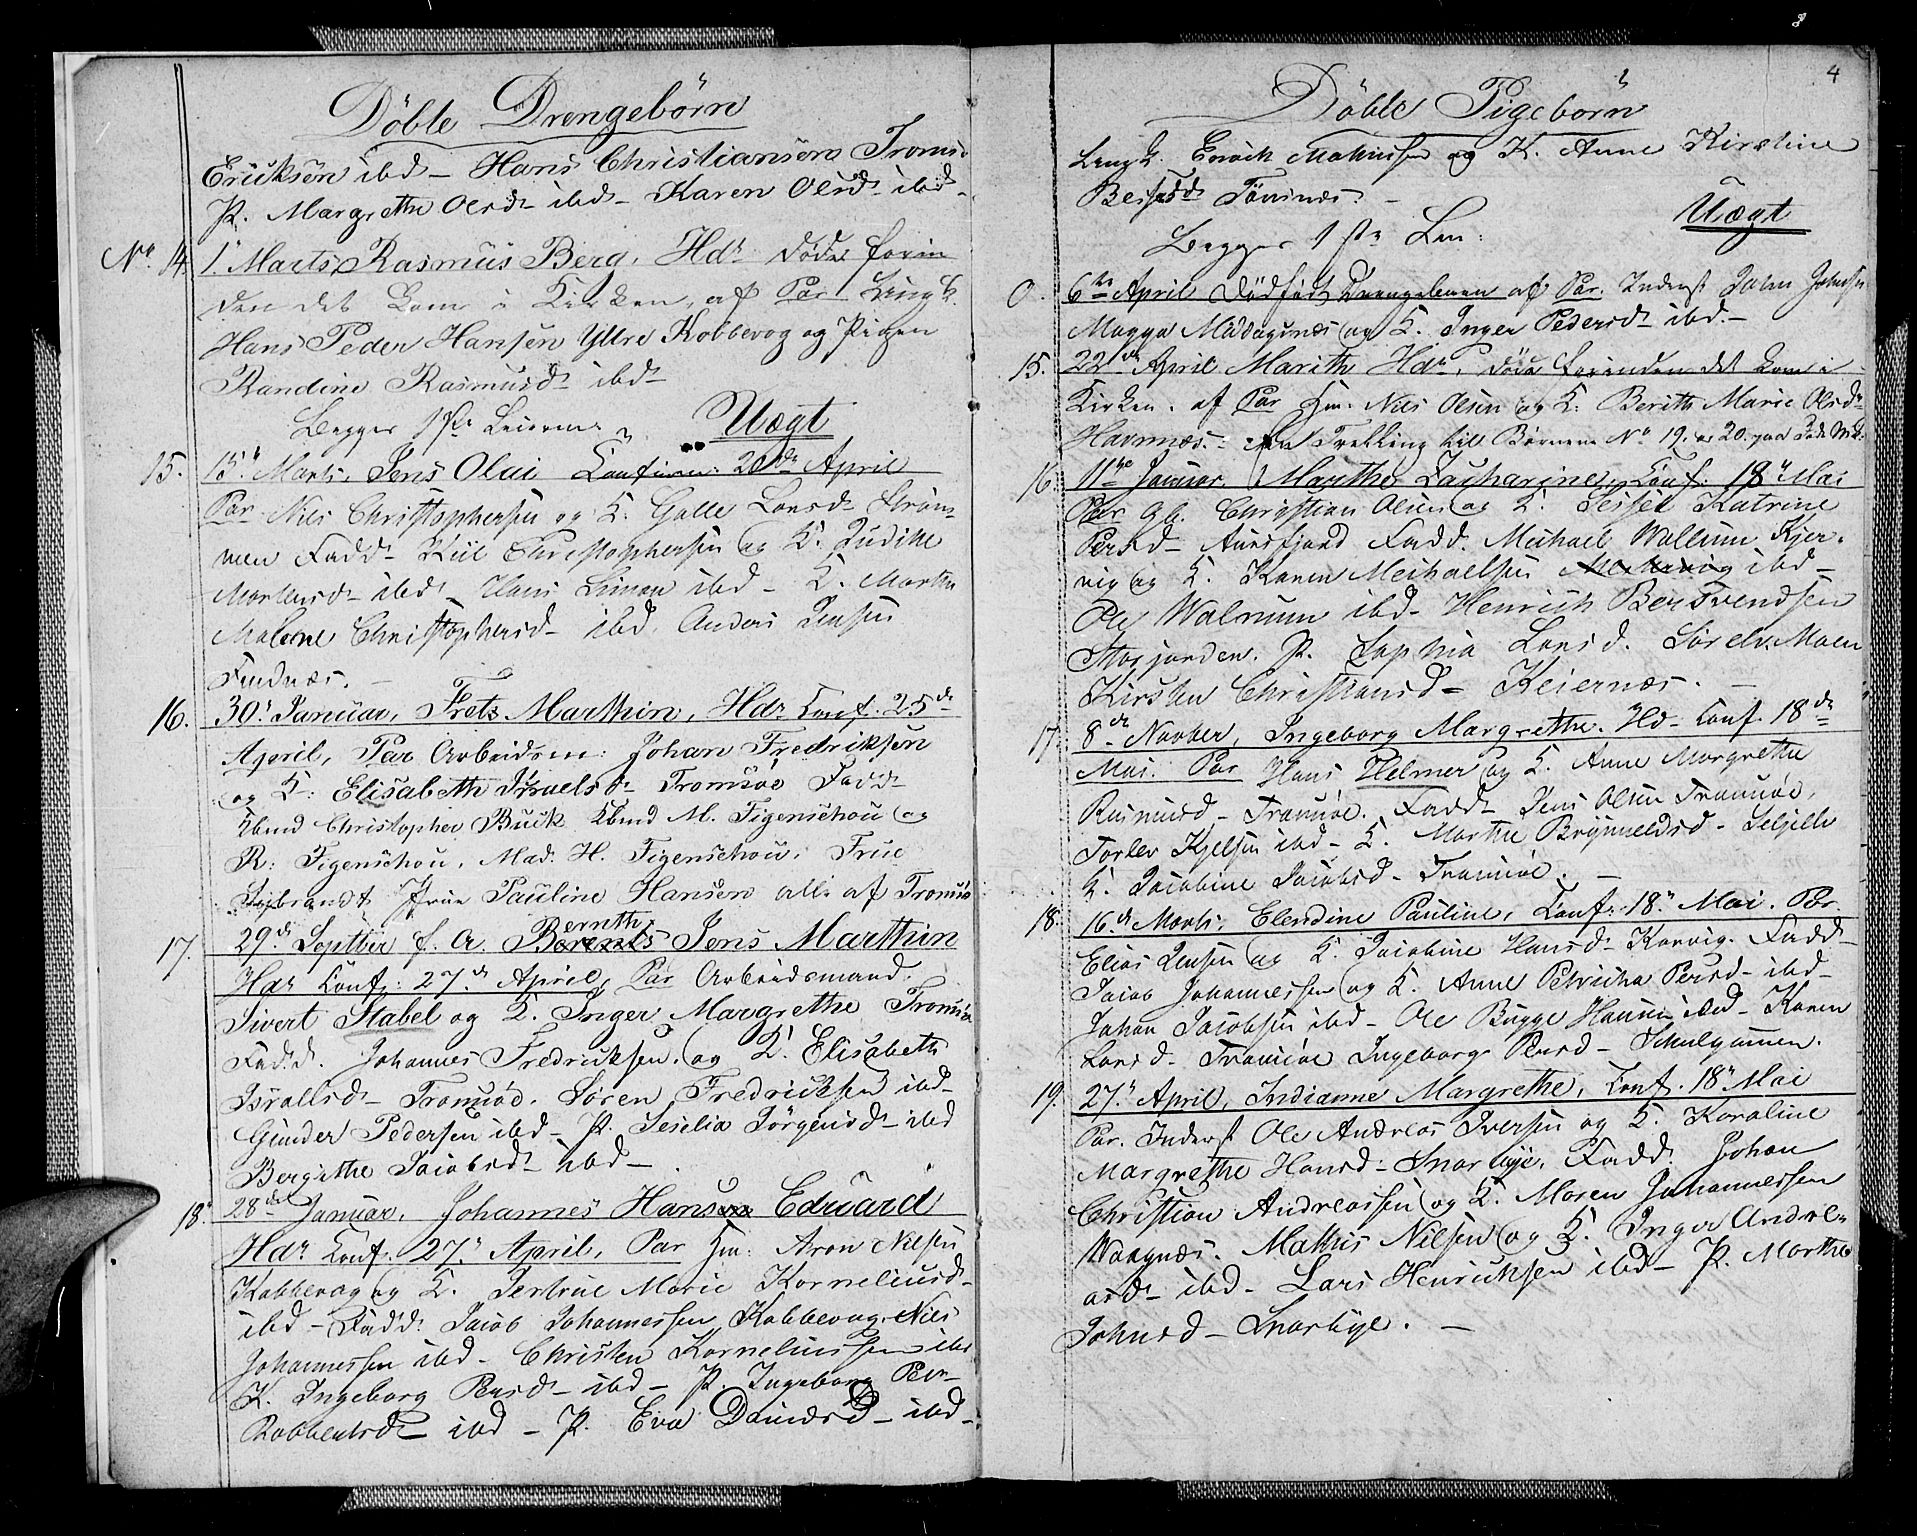 Döbte Drengebörn
Ericksen ibd - Hans Christiansen Troms.
P. Margrethe Olsdr ibd - Karen Olsdr ibd -
No. 14. 1. Marts, Rasmus Berg, Hdr döde forin
den det kom i Kirken, af Par Ungk.
Hans Peder Hansen Yttre Kobbevog og Pigen
Randine Rasmusdr ibd
Begges 1ste Leierm. Uægt
15. 15. Marts, Jens Olai Confirm: 20de April
Par Nils Christophersen og K. Golle Larsd Ström-
men Fadd- Kiil Christophersen og K. Judithe
Mortensd- ibd - Hans Simon ibd - K. Marthe
Malene Christophersd- ibd. Anders Jensen
Findnæs. -
16. 30. Januar, Frets Marthin, Hdr Conf. 25de
April, Par Arbeidsm: Johan Fredriksen
og K. Elisabeth Israelsd- Tromsöe Fadd-
Kbmd Christopher Buck Kbmd M. Figenschou og
R: Figenschou, Mad. H. Figenschou, Frue
Sijbrandt Frue Pauline Hansen alle af Tromsö
17. 29de Septber f. A. Bernth Jens Marthin
Hdr Conf: 27de April, Par Arbeidsmand
Sivert Stabel og K. Inger Margrethe Tromsö
Fadd. Johannes Fredricksen, og K. Elisabeth
Israelsd- Tromsöe. Sören Fredricksen ibd-
Gunder Pedersen ibd- P. Seselia Jörgensd- ibd
Bergithe Jacobsd- ibd-
18. 28de Januar, Johannes Hans Edvard
Hdr Conf. 27. April, Par Gm: Aron Nilsen
Kobbevog og K. Jertrue Marie Korneliusd-
ibd - Fadd: Jacob Johannessen Kobbevog, Nils
Johannessen ibd- Christen Korneliussen ibd
K. Ingeborg Persd- ibd- P. Ingeborg Peer-
Robbentsd- ibd - P. Eva Danielsd- ibd-
4
Döbte Pigebörn
Ungk. Enoch Mathisen og K. Anne Kirstine
Tönsnes. -
Begges 1ste Lei: Uægt
0. 6te April Dödfödt Drengebarn af Par. Inderst Johan Johnsen
og K. Inger Pedersd- ibd.-
15. 22de April Marith Hdr, döde forinden det kom i
Kirken. af Par Gm. Nils Olsen og K. Berith Marie Olsd-
Havnnæs: En Trelling till Börnene No 19. & 20. paa
16. 11te Januar. Marthe Zacharine, Conf: 18. Mai
Par Gb. Christian Olsen og K. Sessel Katrine
Persd- Aursfjord Fadd. Michael Walnum Kjer-
vig og K. Karen Meihaelsen ibd-
Ole Walnum ibd- Henrich Bersvendsen
Storjorden. P. Sophia Larsd. Sörelv. Moen
Kirsten Christiansd- Keiernæs. -
17. 8de Novber, Ingeborg Margrethe. Hd- Conf. 18de
Mai. Par Hans Helmer og K. Anne Margrethe
Rasmusd- Tromsöe. Fadd- Jens Olsen Tromsöe,
Torlev Kjelsen ibd- K. Marthe Brynneldsd- Seljelv
K. Jacobine Jacobsd- Tromsöe. -
18. 16de Marts. Elendine Pauline, Conf: 18. Mai. Par
Elias Jensen og K. Jacobine Hansd- Korvig. Fadd-
Jacob Johannessen og K. Anne Petricka Persd- ibd-
Johan Jacobsen ibd- Ole Bugge Hansen ibd- Karen
Larsd- Tromsöe Ingeborg Persd- Schulgammen.
19. 27. April, Indianne Margrethe, Conf. 18. Mai
Par. Inderst Ole Andreas Iversen og K. Karoline
Margrethe Hansd- Snarbye. Fadd. Johan
Christian Andreassen og K. Maren Johannessen
Vangnæs. Mathis Nilsen og K. Inger Andre-
asd- ibd- Lars Henriksen ibd- P. Marthe
Johnsd- Snarbye. -